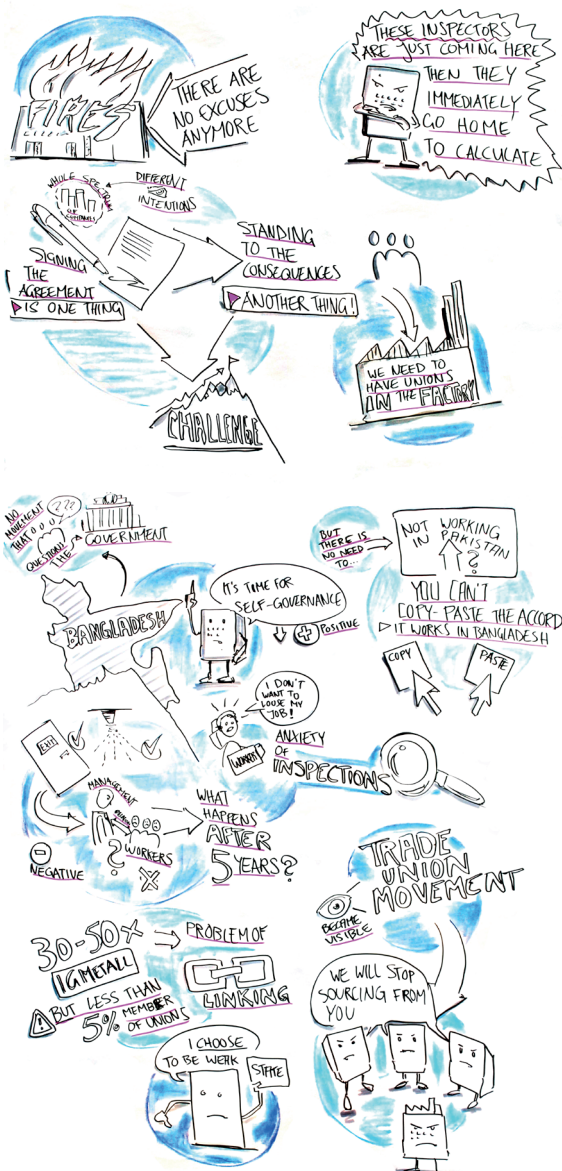 FIRES
THERE ARE
NO EXCUSES
ANYMORE
THESE INSPECTORS
ARE JUST COMING HERE
THEN THEY
IMMEDIATELY
GO HOME
TO CALCULATE
WHOLE SPECTRUM
OF COMPANIES
DIFFERENT
INTENTIONS
SIGNING
THE
AGREEMENT
IS ONE THING
STANDING
TO THE
CONSEQUENCES
ANOTHER THING!
CHALLENGE
WE NEED TO
HAVE UNIONS
IN THE FACTORY
NO
MOVEMENT
THAT
QUESTIONS
THE
???
GOVERNMENT
BANGLADESH
IT'S TIME FOR
SELF-GOVERNANCE
+ POSITIVE
BUT
THERE IS
NO NEED
TO...
NOT WORKING
IN PAKISTAN
?
YOU CAN'T
COPY-PASTE THE ACCORD
IT WORKS IN BANGLADESH
COPY
PASTE
EXIT
I DON'T
WANT TO
LOUSE MY
JOB!
WORKER
ANXIETY
OF
INSPECTIONS
MANAGEMENT
?
WORKERS
- NEGATIVE
WHAT
HAPPENS
AFTER
5 YEARS?
TRADE
UNION
MOVEMENT
BECAME
VISIBLE
30-50x
IG METALL
BUT LESS THAN
5% MEMBER
OF UNIONS
PROBLEM OF
LINKING
WE WILL STOP
SOURCING FROM
YOU
I CHOOSE
TO BE WEAK
STATE